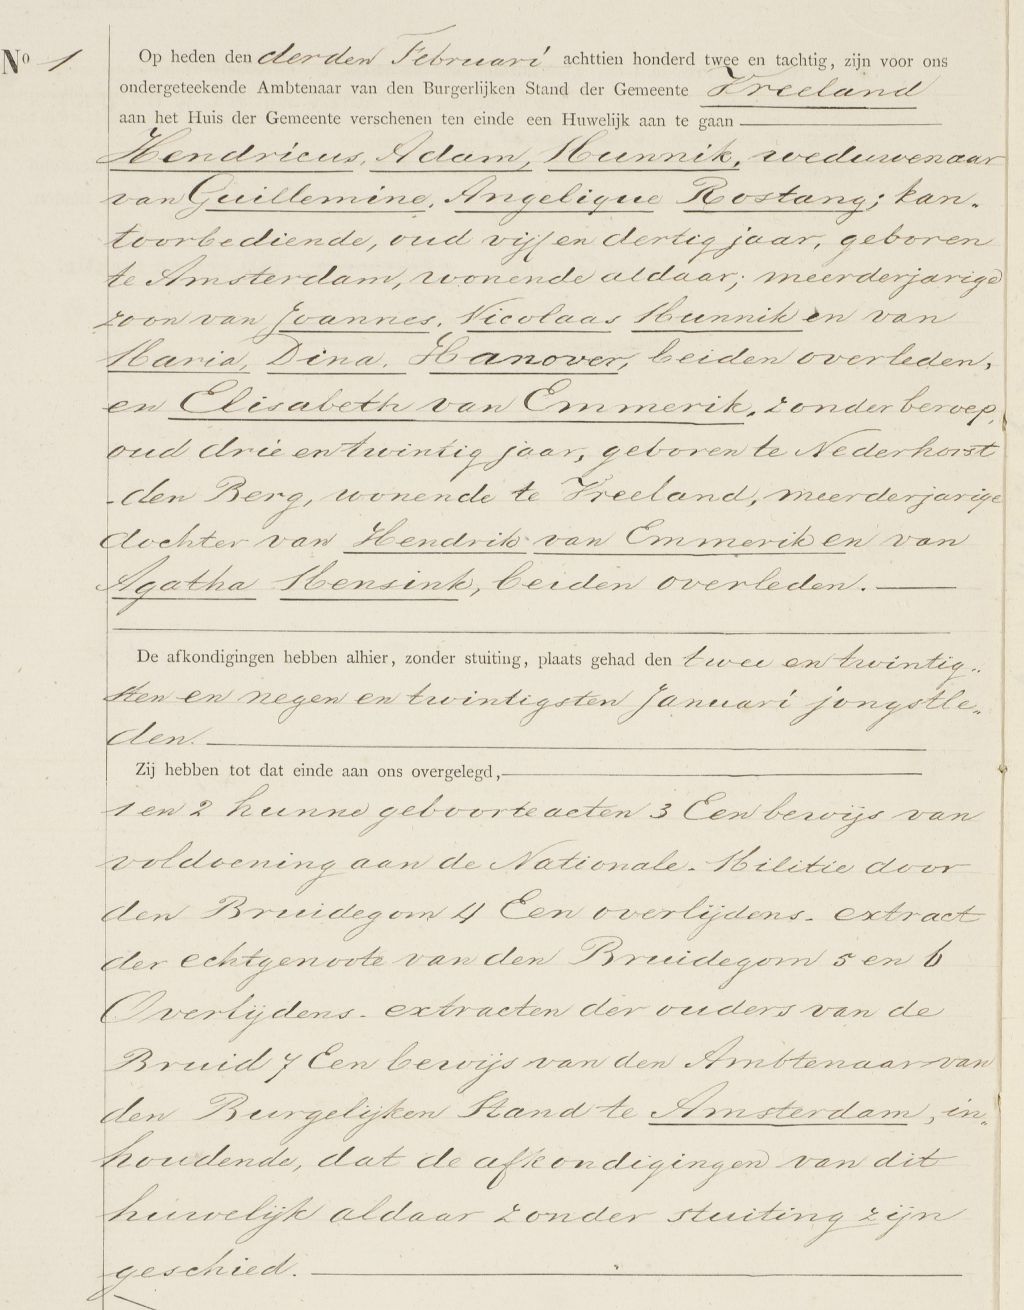 Nº 1
Op heden den derden Februari achttien honderd twee en tachtig, zijn voor ons
ondergeteekende Ambtenaar van den Burgerlijken Stand der Gemeente Vreeland
aan het Huis der Gemeente verschenen ten einde een Huwelijk aan te gaan
Hendricus, Adam, Hunnik, weduwenaar
van Guillemine, Angelique Rostang; kan„
toorbediende, oud vijf en dertig jaar, geboren
te Amsterdam, wonende aldaar; meerderjarige
zoon van Joannes, Nicolaas Hunnik en van
Maria, Dina, Hanover, beiden overleden,
en Elisabeth van Emmerik, zonder beroep,
oud drie en twintig jaar, geboren te Nederhorst
-den Berg, wonende te Vreeland, meerderjarige
dochter van Hendrik van Emmerik en van
Agatha Mensink, beiden overleden.
De afkondigingen hebben alhier, zonder stuiting, plaats gehad den twee en twintig„
sten en negen en twintigsten Januari jongstle„
den.
Zij hebben tot dat einde aan ons overgelegd,
1 en 2 hunne geboorteacten 3 Een bewijs van
voldoening aan de Nationale-Militie door
den Bruidegom 4 Een overlijdens-extract
der echtgenoote van den Bruidegom 5 en 6
Overlijdens-extracten der ouders van de
Bruid 7 Een bewijs van den Ambtenaar van
den Burgelijken Stand te Amsterdam, in„
houdende, dat de afkondigingen van dit
huwelijk aldaar zonder stuiting zijn
geschied.